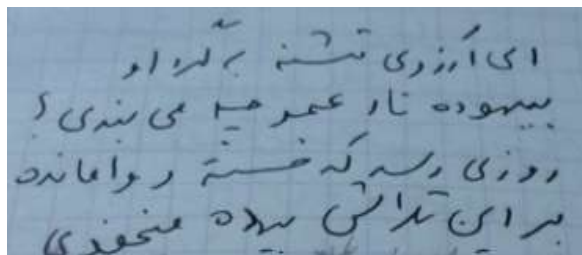 ای آرزوی تشنه به گرد او
بیهوده تار عمر چه می بندی؟
روزی رسد که خسته و وامانده
بر این تلاش بیهده میخندی